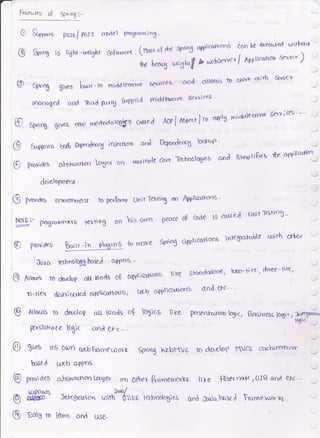 Features of spring:-
① Supports POJO / POJI model programming.
② Spring is light-weight software. (Most of the spring applications can be executed without
the heavy weight webserver / Application server)
③ Spring gives built-in middleware services and allows to work with server
managed and third party supplied middleware services.
④ Spring gives two methodologies called AOP / Aspect / to apply middleware services...
⑤ Supports both Dependency injection and Dependency lookup.
⑥ provides abstraction layer on multiple core Technologies and simplifies the application
development.
⑦ provides environment to perform Unit Testing on Applications.
NOTE:- programmers testing on his own peace of code is called Unit Testing.
⑧ provides Built-in plugins to make spring applications integratable with other
Java technology based appns.
⑨ Allows to develop all kinds of applications like standalone, two-tire, three-tire,
n-tier distributed applications, web applications and etc...
⑩ Allows to develop all kinds of logics like presentation logic, Business logic, Integration logic,
persistence logic and etc...
⑪ gives its own web Framework Spring WebMVC to develop MVC2 architecture
based web appns
⑫ provides abstraction layer on other frameworks like Hibernate, OJB and etc...
⑬ supports Integration with Java/J2EE technologies and Java based Frameworks.
⑭ Easy to learn and use.